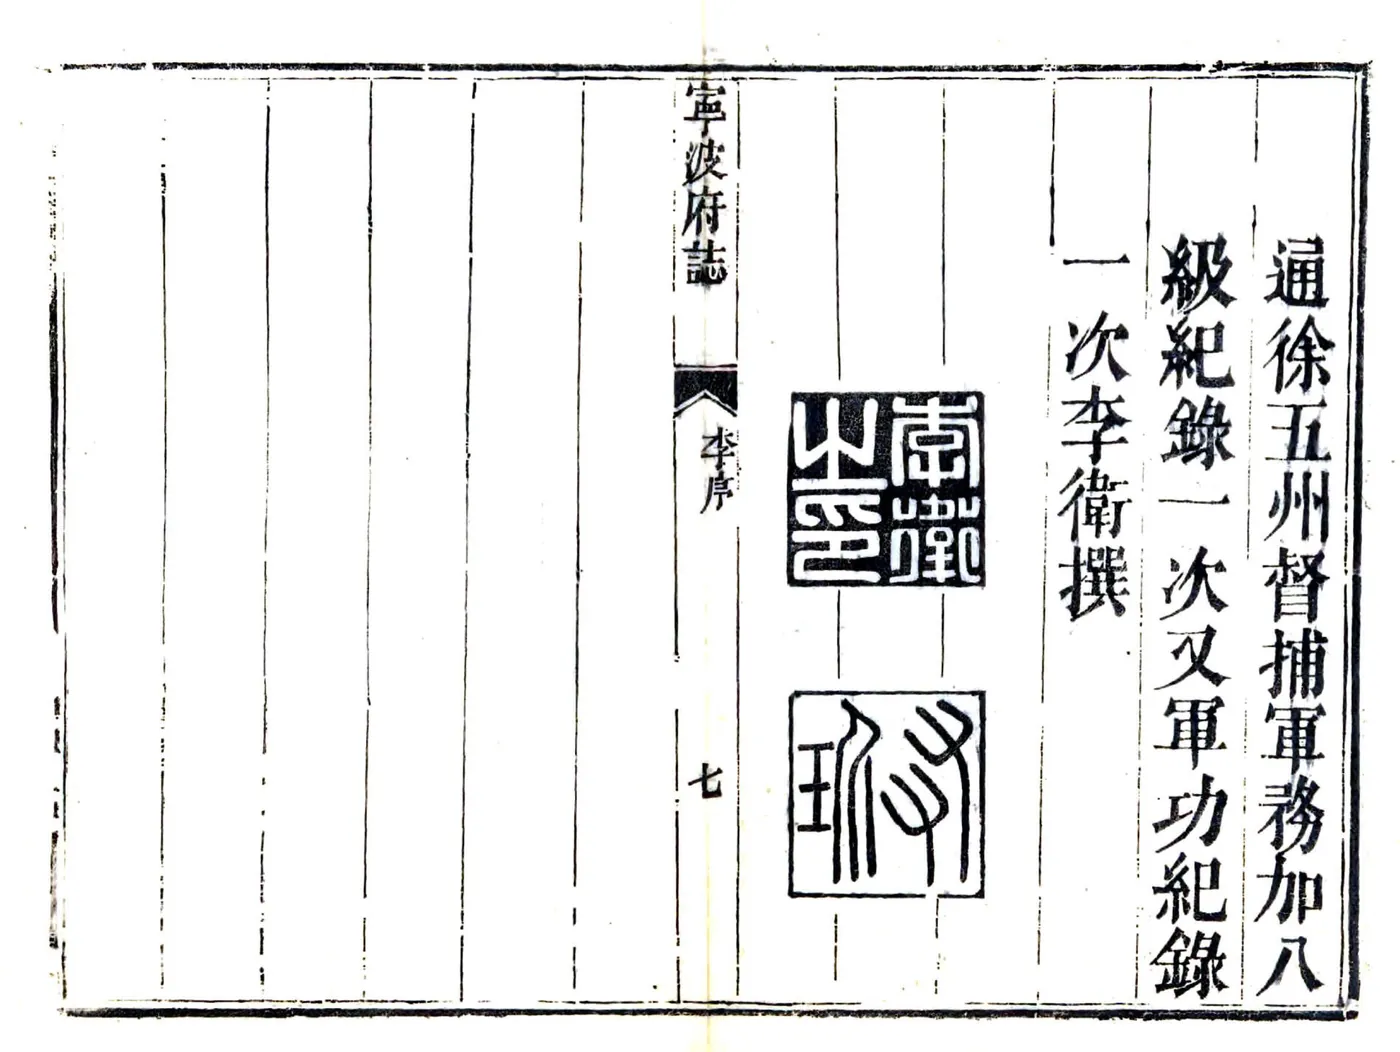 通徐五州督捕軍務加八
級紀錄一次又軍功紀錄
一次李衛撰
李衛之印
玠
寧波府誌
李序
七